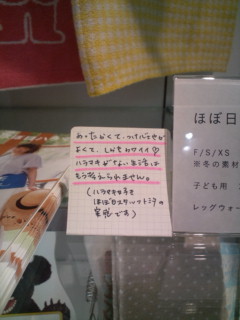 あったかくて、つけ心地が
よくて、しかもカワイイ♡
ハラマキがない生活は
もう考えられません。
(ハラマキ好き
ほぼ日スタッフトミタの
実感です)
ほぼ日
F/S/XS
※冬の素材
子ども用
レッグウォー